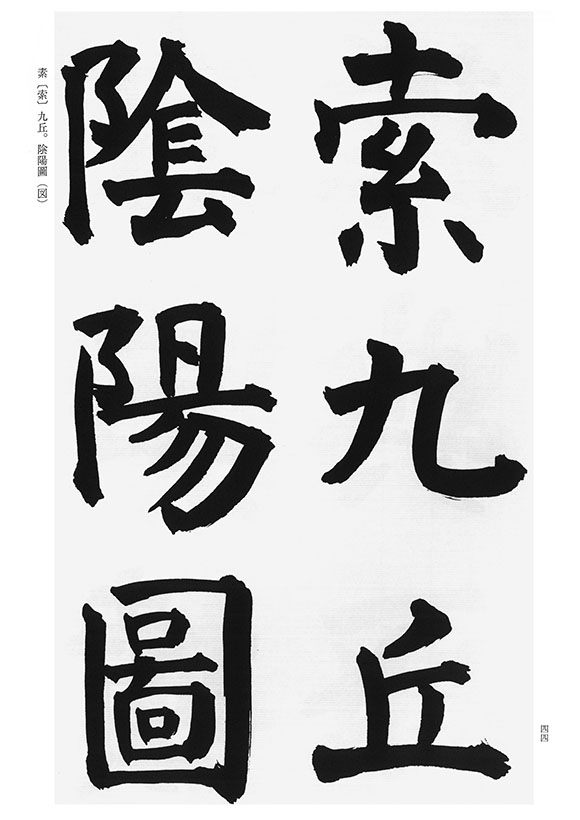 索九丘
陰陽圖
素〔索〕九丘。陰陽圖（図）
四四